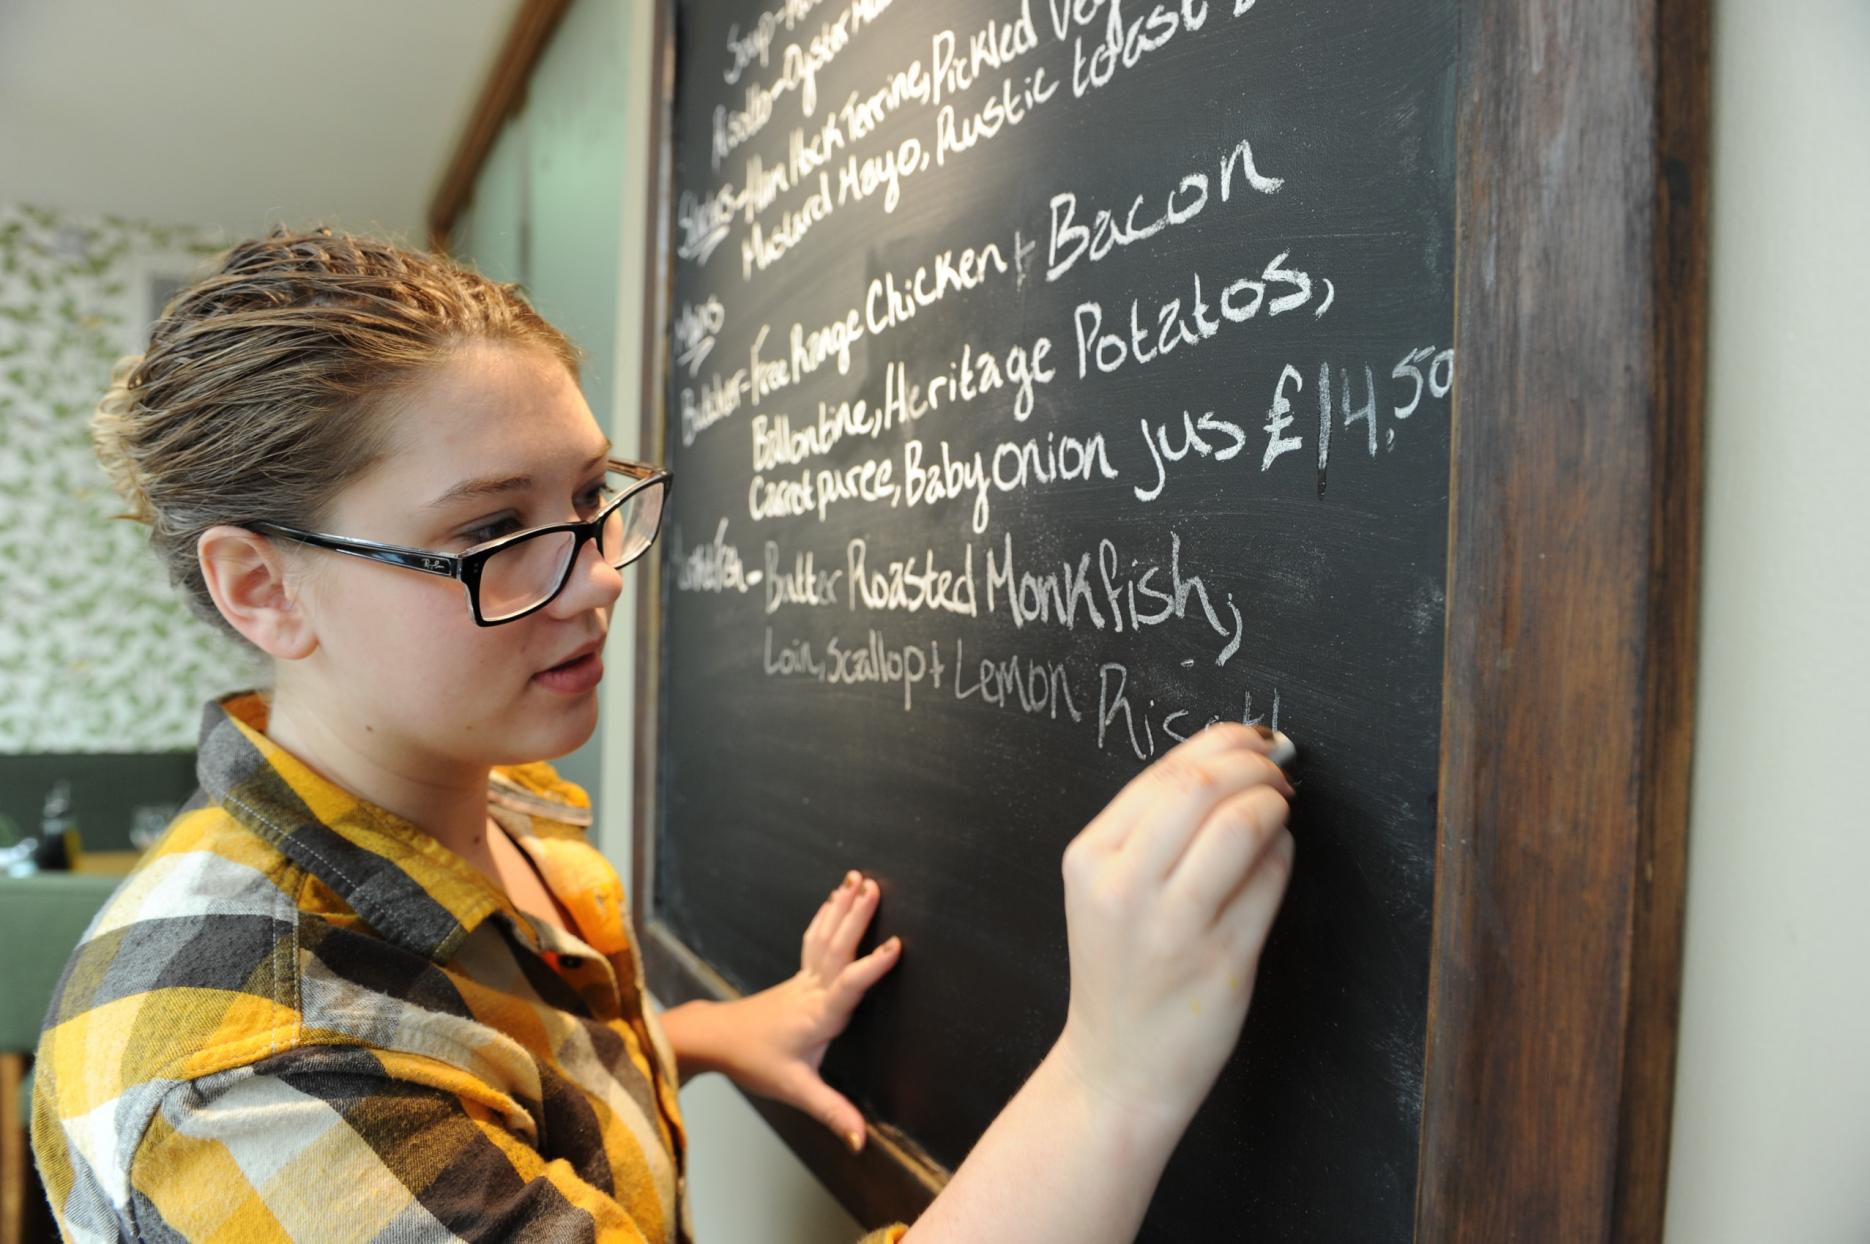 Soup-
Risotto-Oyster
Slates-Ham Hock Terrine, Pickled Veg
Mustard Mayo, Rustic toast
Mains
Butcher-Free Range Chicken + Bacon
Ballontine, Heritage Potatos,
Carrot puree, Baby onion jus £14.50
Butter Roasted Monkfish,
Loin, Scallop + Lemon Risott
Ray-Ban